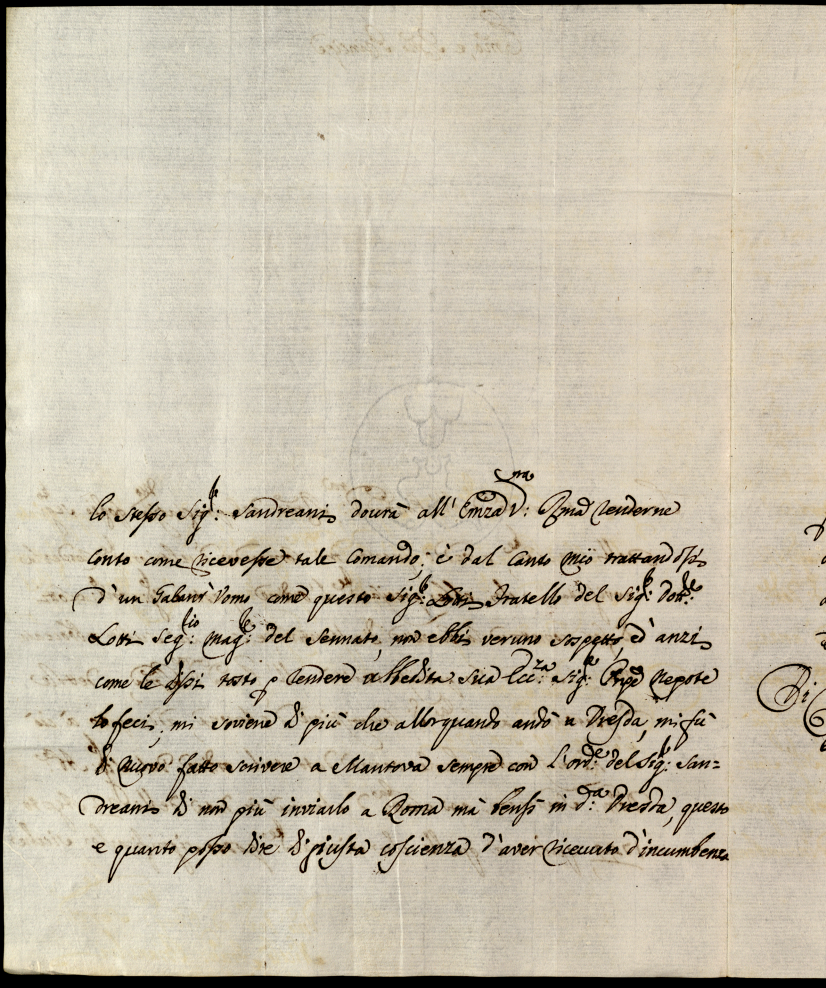 lo stesso Sig.re Sandreani dourà all' Emza V.ra: Rma renderne
conto come ricevesse tale comando, è dal canto mio trattandosi
d'un Galant Uomo come questo Sig.re Lotti Fratello del Sig.re Dott.re
Lotti Seg.rio: mag.re del Sennato, non ebbi veruno sospetto, ed anzi
come le dissi tosto p rendere obbedita sua Ecc.za Sig.re Prpe Nepote
lo feci, mi soviene di più che allorquando andò a Dresda, mi fù
di nuovo fatto scrivere a Mantova sempre con l'ord.e del Sig.re San=
dreani di non più inviarlo a Roma mà bensì in d.a: Dresda, questo
e quanto posso dire di giusta coscienza d'aver riceuuto d'incumbenza